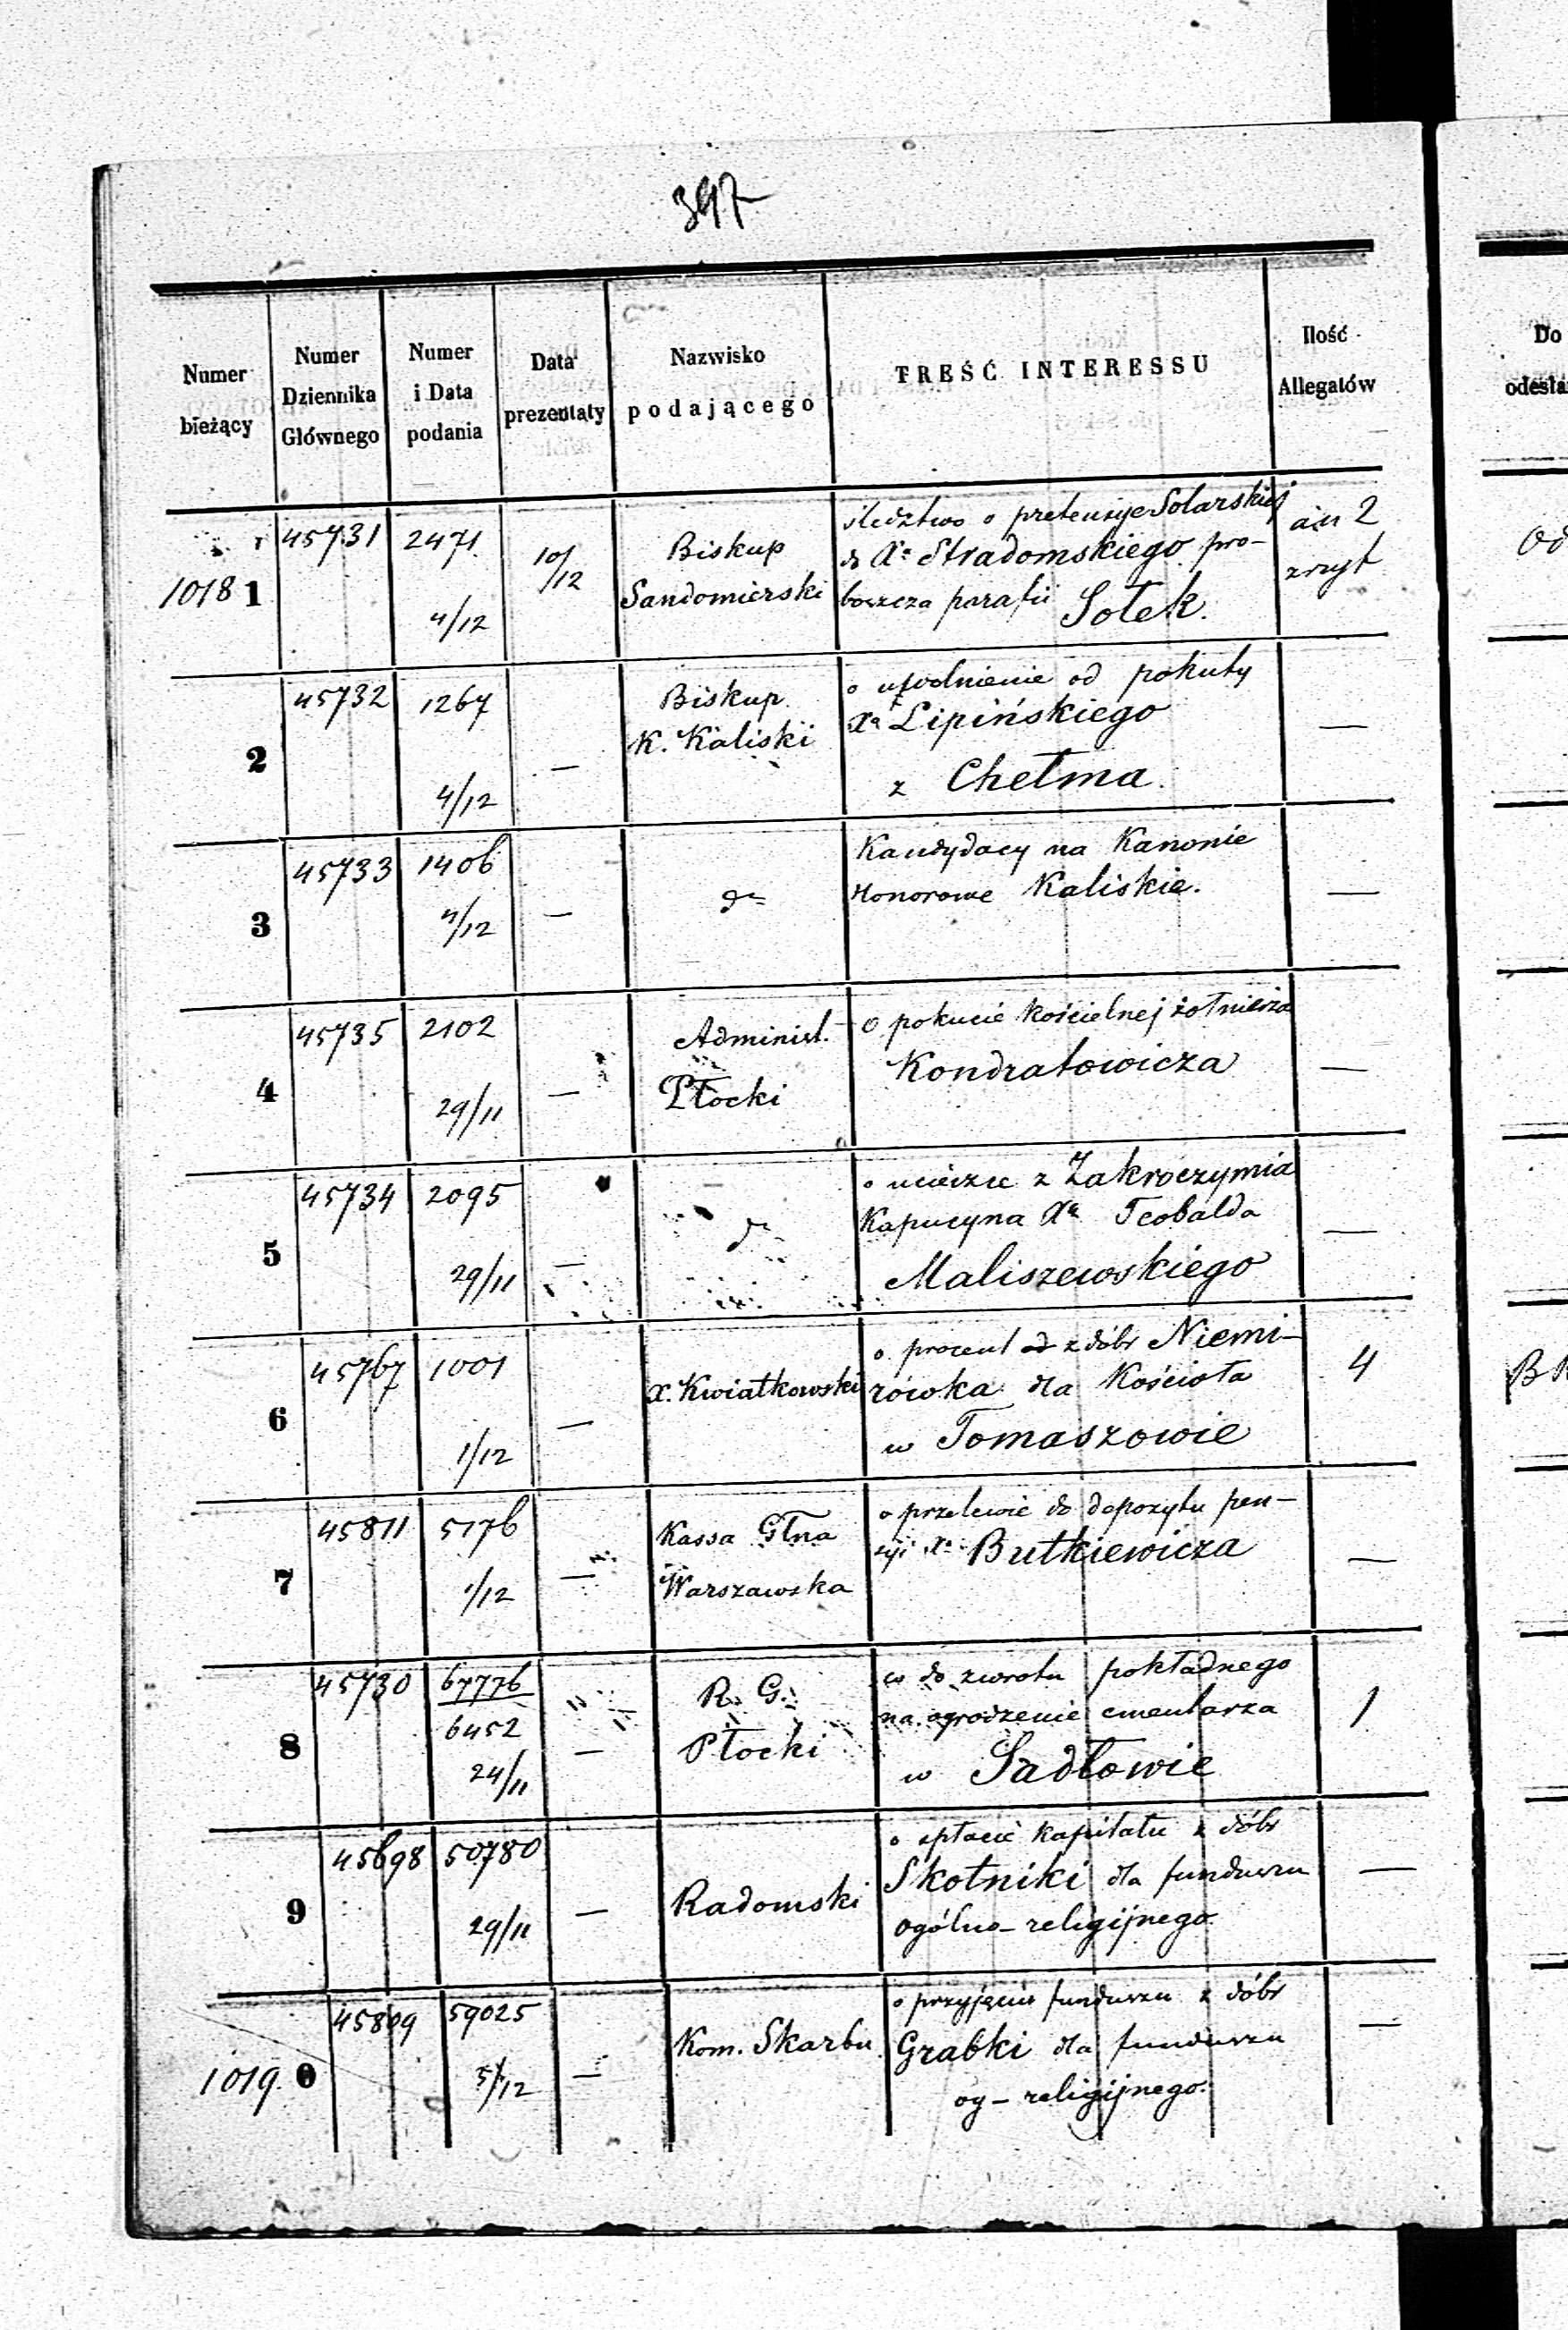 397
Numer bieżący
Numer Dziennika Głównego
Numer i Data podania
Data prezentaty
Nazwisko podającego
TREŚĆ INTERESSU
Ilość Allegatów
Do
odesła
10181
45731
2471
4/12
10/12
Biskup
Sandomierski
śledztwo o pretensye Solarskiej
do Xa Stradomskiego pro-
boszcza parafii Sołek.
2
zszyt
2
45732
1267
4/12
—
Biskup
K. Kaliski
o uwolnienie od pokuty
Xa Lipińskiego
z Chełma.
—
3
45733
1406
4/12
—
do
Kandydacy na Kanonie
Honorowe Kaliskie.
—
4
45735
2102
29/11
—
Administ.
Płocki
O pokucie kościelnej żołnierza
Kondratowicza
—
5
45734
2095
29/11
—
do
o ucieczce z Zakroczymia
Kapucyna Xa Teobalda
Maliszewskiego
—
6
45767
1001
1/12
—
X. Kwiatkowski
o procent od z dóbr Niemi-
rówka dla Kościoła
w Tomaszowie
4
7
45811
5176
1/12
—
Kassa Głna
Warszawska
o przelewie do depozytu pen-
syi Xa Butkiewicza
—
8
45730
67776
6452
24/11
—
R. G.
Płocki
co do zwrotu pokładnego
na ogrodzenie cmentarza
w Sadłowie
1
9
45698
50780
29/11
—
Radomski
o spłacie kapitału z dóbr
Skotniki dla funduszu
ogólno-religijnego.
—
1019.0
45809
59025
5/12
—
Kom. Skarbu
o przyjęciu funduszu z dóbr
Grabki dla funduszu
og-religijnego.
—